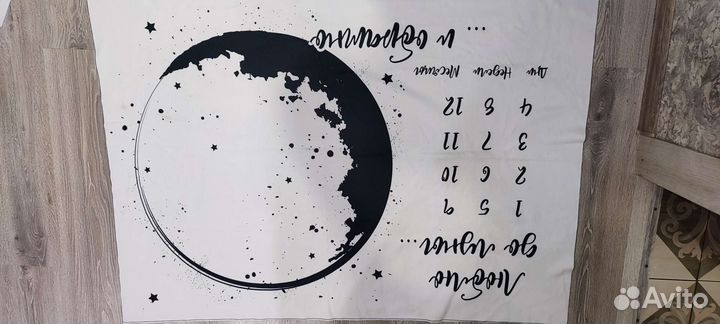 Люблю
до луны...
1 5 9
2 6 10
3 7 11
4 8 12
Дни Недели Месяцы
... и обратно
Avito